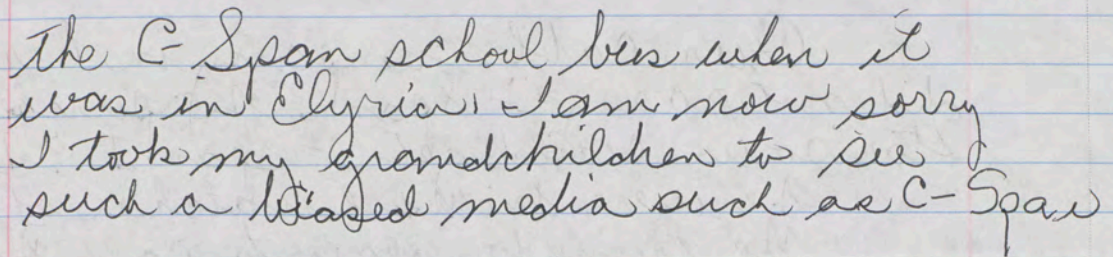 the C-Span school bus when it
was in Elyria, I am now sorry
I took my grandchildren to see
such a biased media such as C-Span